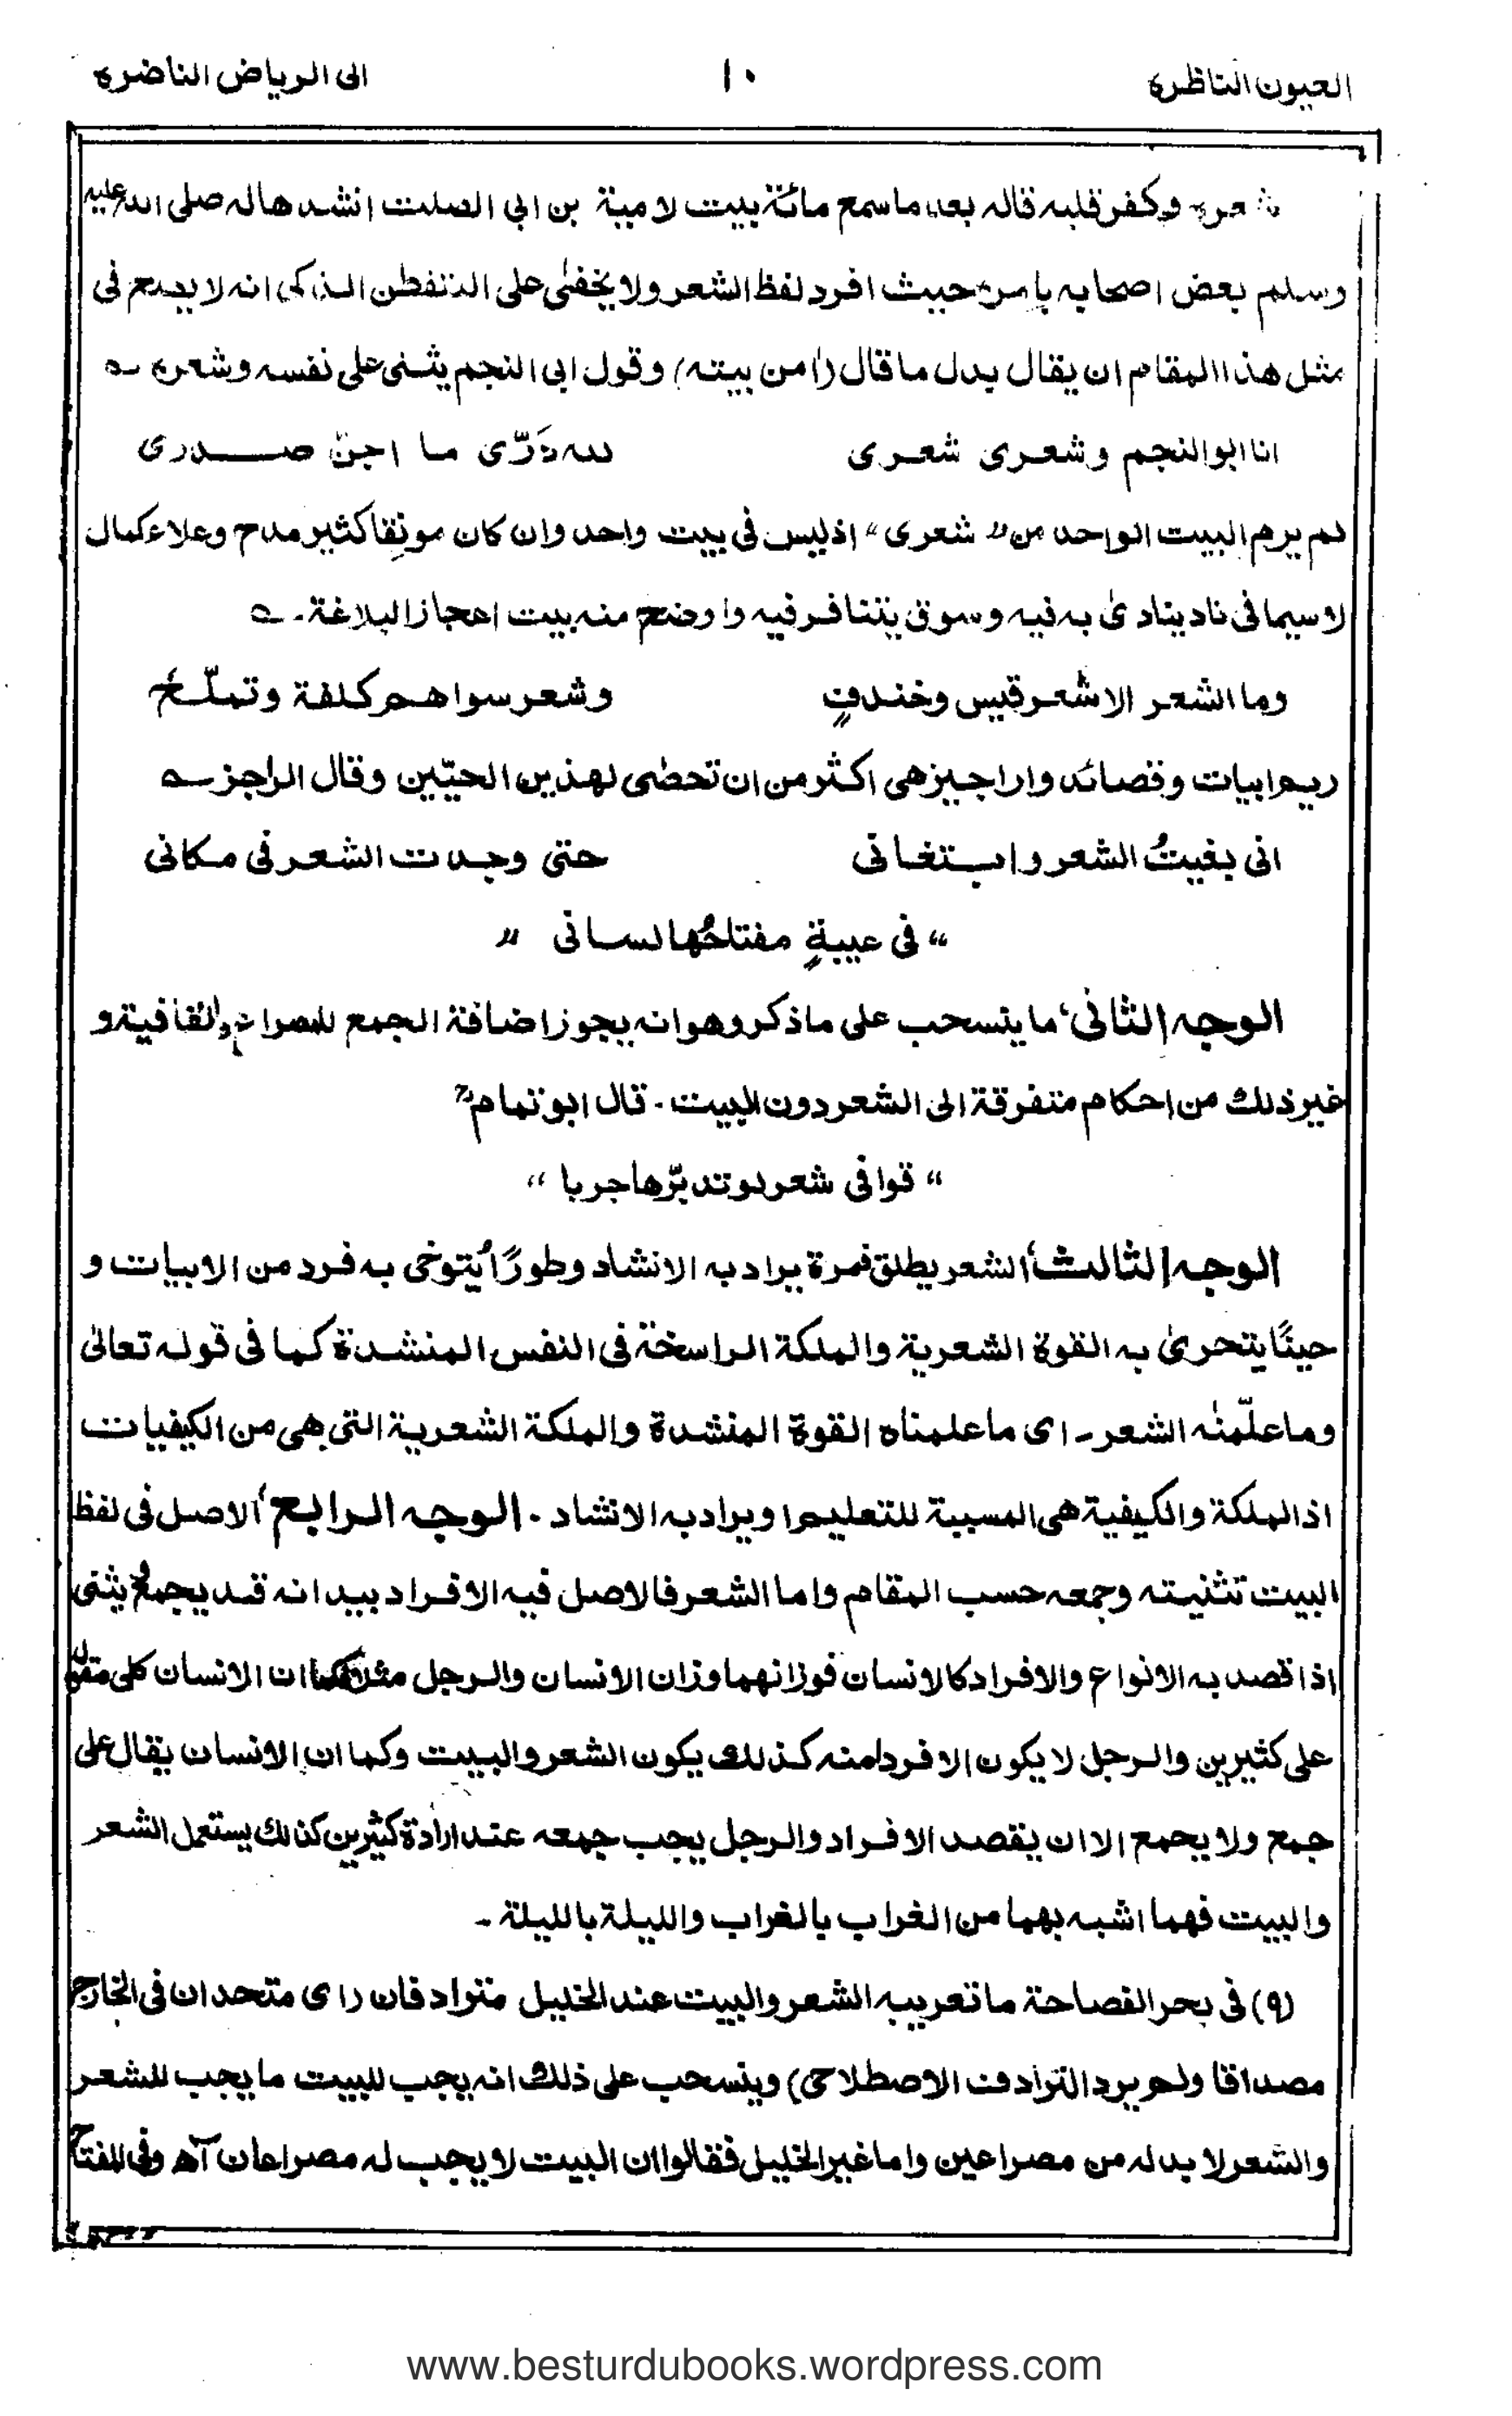 العيون الناظرة ١٠ الى الرياض الناضرة
شعره وكفر قلبه قاله بعد ما سمع مائة بيت لامية بن ابى الصلت انشدها له صلى الله عليه
وسلم بعض اصحابه بامره حيث افرد لفظ الشعر ولا يخفىٰ على المتفطن الذكى انه لا يصح فى
مثل هذا المقام ان يقال بدل ما قال (اٰمن بيته) وقول ابى النجم يثنى على نفسه وشعره ؎
انا ابو النجم وشعرى شعرى لله دَرّى ما اجنّ صدرى
لم يرم البيت الواحد من "شعرى" اذ ليس فى بيت واحد وان كان مونقا كثير مدح وعلاء كمال
لا سيما فى ناد ينادىٰ به فيه وسوق يتنافر فيه واوضح منه بيت اعجاز البلاغة۔ ؎
وما الشعر الا شعر قيس وخندفٍ وشعر سواهم كلفة وتملّحُ
ابيات وقصائد واراجيز هى اكثر من ان تحصٰى لهذين الحيّين وقال الراجز ؎
انى بغيتُ الشعر وابتغانى حتى وجدت الشعر فى مكانى
"فى عيبةٍ مفتاحُها لسانى"
الوجه الثانى، ما ينسحب على ما ذكر وهو انه يجوز اضافة الجمع للمصراع والقافية و
غير ذلك من احكام متفرقة الى الشعر دون البيت۔ قال ابو تمام
"قوافى شعر لو تدبّرها جربا"
الوجه الثالث، الشعر يطلق فمرة يراد به الانشاد وطورًا يُتوخى به فرد من الابيات و
حينًا يتحرىٰ به القوة الشعرية والملكة الراسخة فى النفس المنشدة كما فى قوله تعالىٰ
وما علّمنٰه الشعر۔ اى ما علمناه القوة المنشدة والملكة الشعرية التى هى من الكيفيات
اذ الملكة والكيفية هى المسببة للتعليم او يراد به الانشاد۔ الوجه الرابع، الاصل فى لفظ
البيت تثنيته وجمعه حسب المقام واما الشعر فالاصل فيه الافراد بيد انه قد يجمع ويثنى
اذا قصد به الانواع والافراد كالانسان فوزانهما وزان الانسان والرجل مثلا كما ان الانسان كلى مقول
على كثيرين والرجل لا يكون الا فردا منه كذلك يكون الشعر والبيت وكما ان الانسان يقال على
جمع ولا يجمع الا ان يقصد الافراد والرجل يجب جمعه عند ارادة كثيرين كذالك يستعمل الشعر
والبيت فهما اشبه بهما من الغراب بالغراب والليلة بالليلة۔
(٩) فى بحر الفصاحة ما تعريبه الشعر والبيت عند الخليل مترادفان (اى متحدان فى الخارج
مصداقا ولم يرد الترادف الاصطلاحى) وينسحب على ذلك انه يجب للبيت ما يجب للشعر
والشعر لا بد له من مصراعين واما غير الخليل فقالوا ان البيت لا يجب له مصراعان آھ وفى المفتاح
www.besturdubooks.wordpress.com